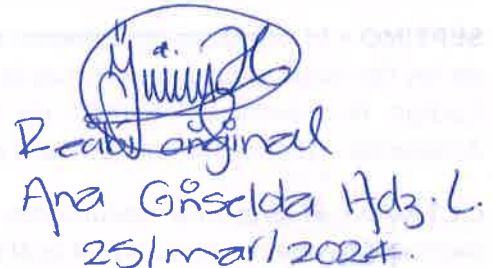 Recibí original
Ana Griselda Hdz. L.
25/mar/2024.